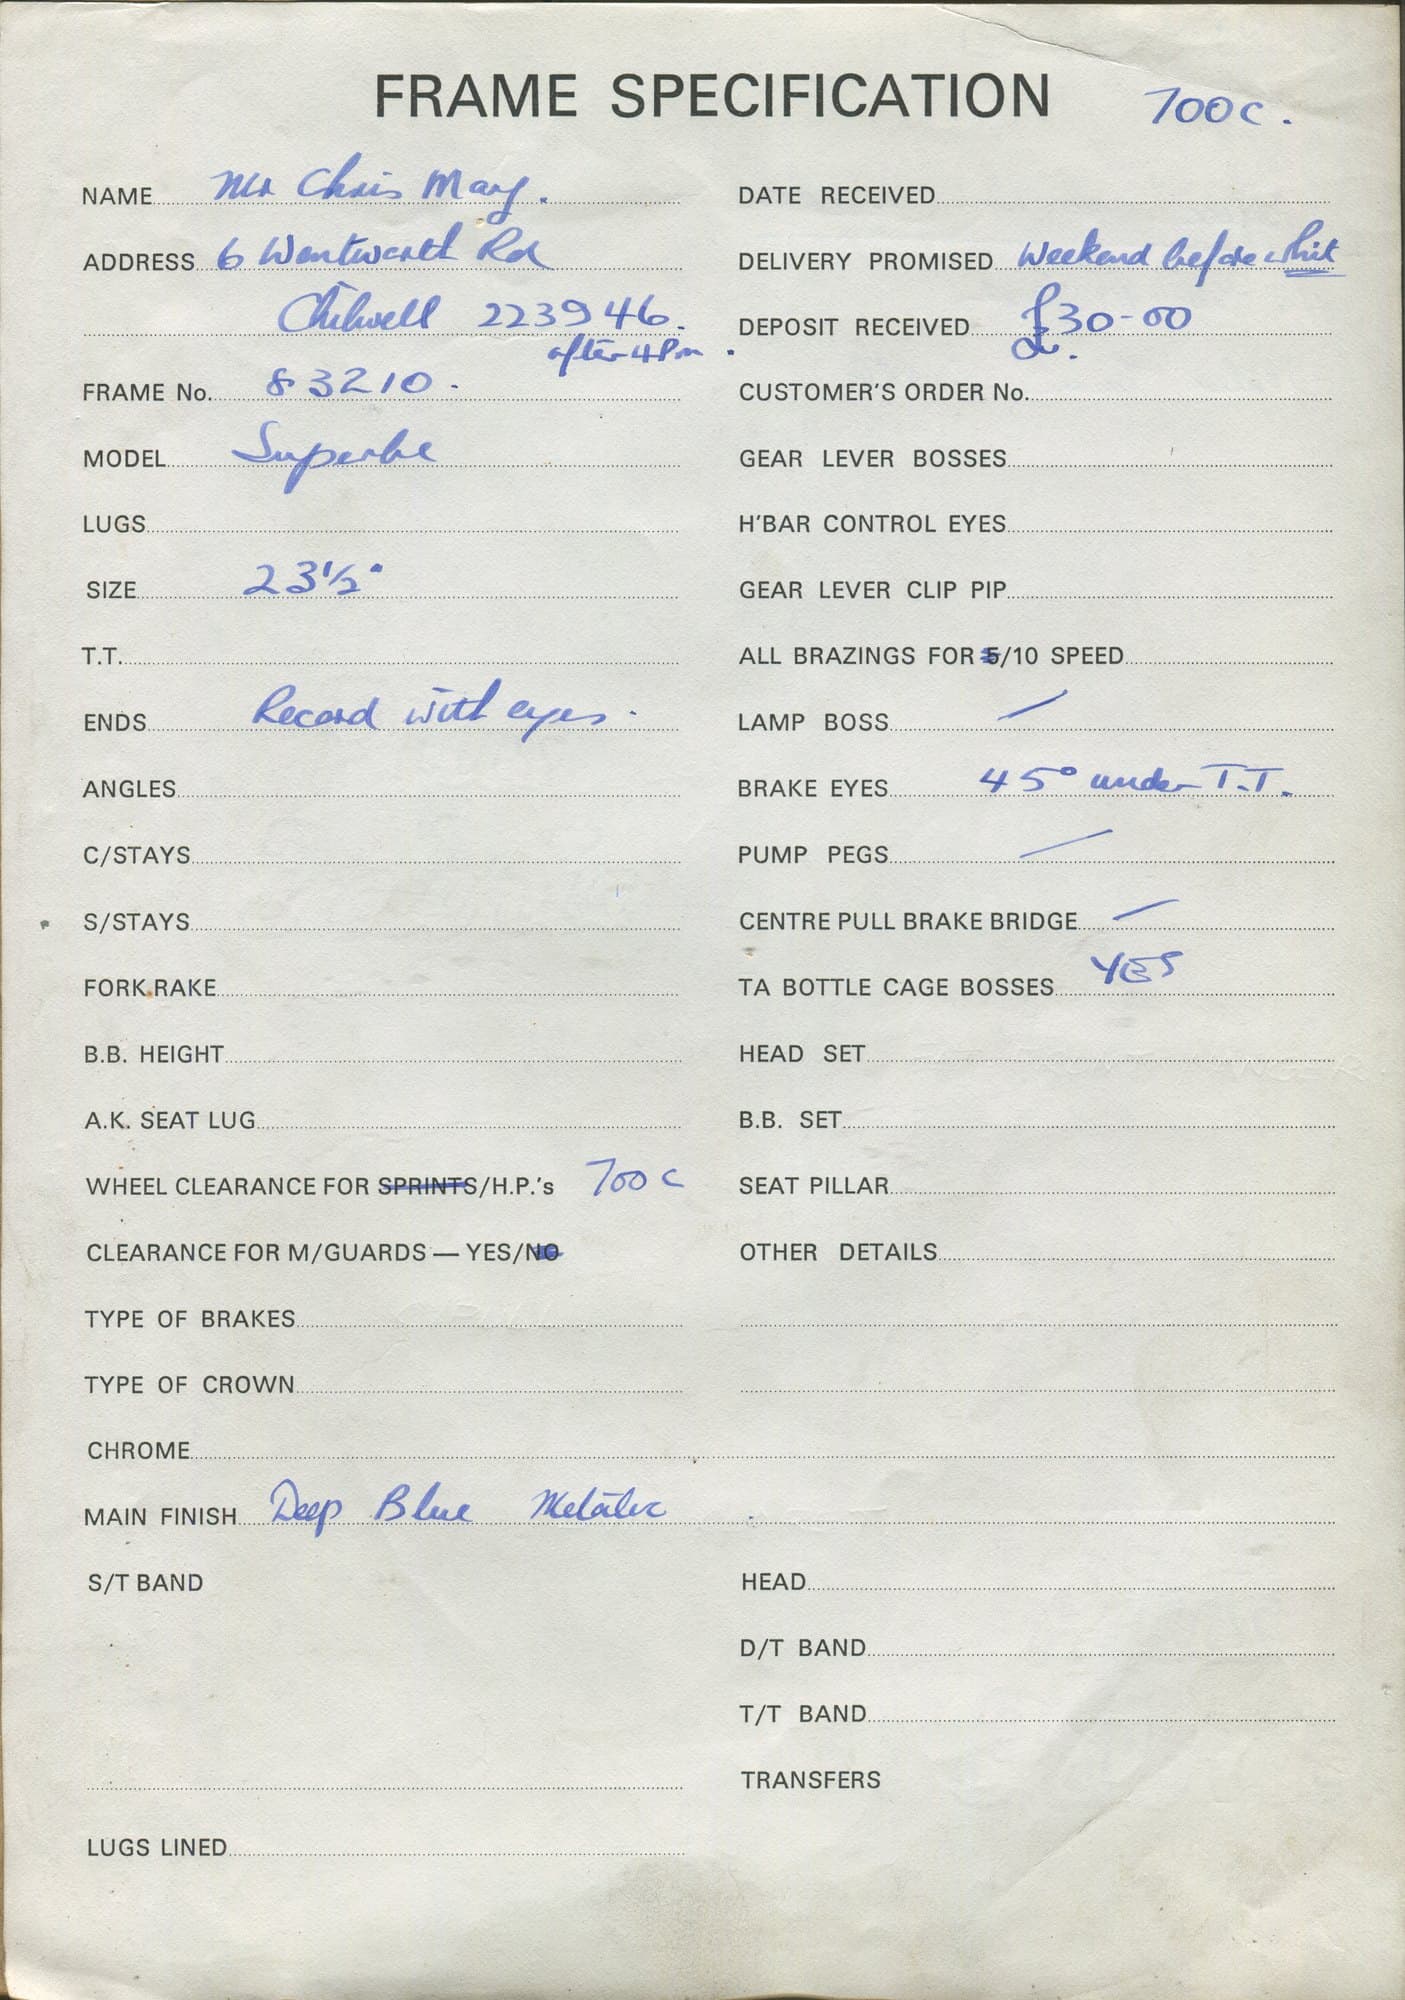 FRAME SPECIFICATION 700c.
NAME Mr Chris May.
ADDRESS 6 Wentworth Rd
Chilwell 223946.
after 4 Pm.
FRAME No. 83210.
MODEL Superbe
LUGS
SIZE 23½"
T.T.
ENDS Record with eyes.
ANGLES
C/STAYS
S/STAYS
FORK RAKE
B.B. HEIGHT
A.K. SEAT LUG
WHEEL CLEARANCE FOR SPRINTS/H.P.'s 700c
CLEARANCE FOR M/GUARDS — YES/NO
TYPE OF BRAKES
TYPE OF CROWN
CHROME
MAIN FINISH Deep Blue Metalic
S/T BAND
LUGS LINED
DATE RECEIVED
DELIVERY PROMISED Weekend before Whit
DEPOSIT RECEIVED £30-00
CUSTOMER'S ORDER No.
GEAR LEVER BOSSES
H'BAR CONTROL EYES
GEAR LEVER CLIP PIP
ALL BRAZINGS FOR 5/10 SPEED
LAMP BOSS
BRAKE EYES 45° under T.T.
PUMP PEGS
CENTRE PULL BRAKE BRIDGE
TA BOTTLE CAGE BOSSES YES
HEAD SET
B.B. SET
SEAT PILLAR
OTHER DETAILS
HEAD
D/T BAND
T/T BAND
TRANSFERS